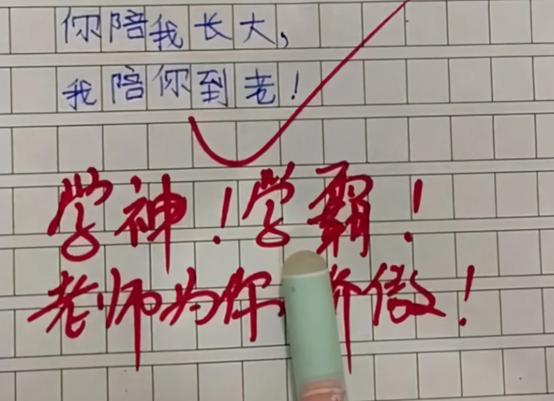 你陪我长大，
我陪你到老！
学神！学霸！
老师为你骄傲！